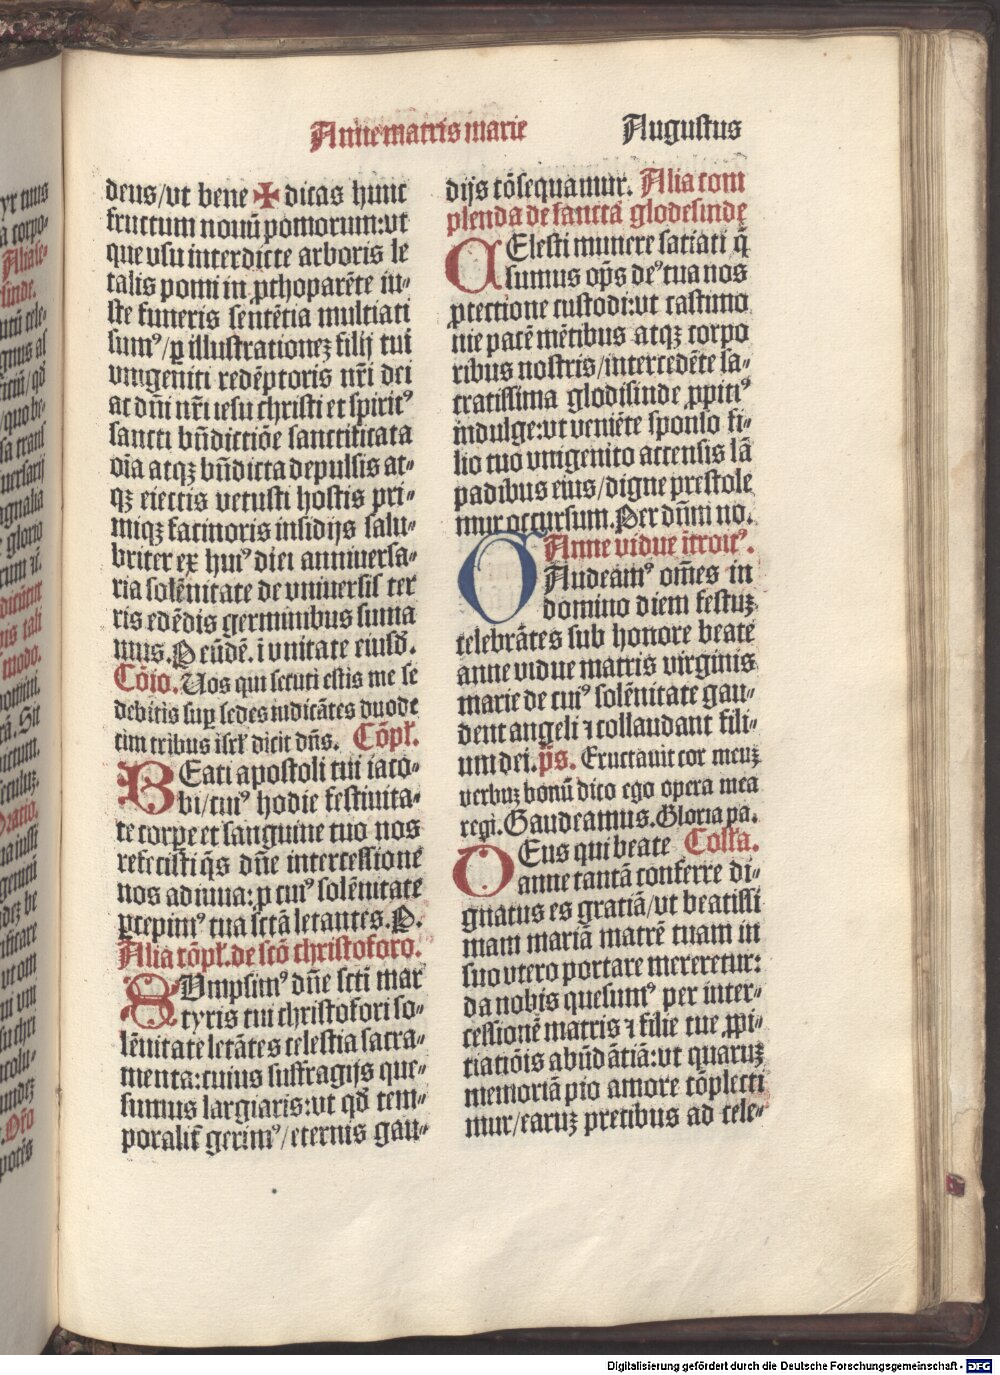 Anne matris marie
Augustus
deus/vt bene ✠ dicas hunc
fructum nouū pomorum:vt
que vsu interdicte arboris le
talis pomi in ꝓthoparēte iu⸗
ste funeris sentētia multiati
sumꝰ/ꝑ illustrationeꝫ filij tui
vnigeniti redēptoris nr̄i dei
ac dn̄i nr̄i iesu christi et spiritꝰ
sancti bn̄dictiōe sanctificata
oīa atqꝫ bn̄dicta depulsis at⸗
qꝫ eiectis vetusti hostis pri⸗
miqꝫ facinoris insidijs salu⸗
briter ex huiꝰ diei anniuersa⸗
ria solēnitate de vniuersis ter
ris edēdis germinibus suma
mus. P eūdē. i vnitate eiusd̄.
Cōio. Uos qui secuti estis me se
debitis suꝑ sedes iudicātes duode
cim tribus isrł dicit dn̄s. Cōpł.
BEati apostoli tui iaco⸗
bi/cuiꝰ hodie festiuita⸗
te corpe et sanguine tuo nos
refecisti q̄s dn̄e intercessione
nos adiuua:ꝓ cuiꝰ solēnitate
ꝑcepimꝰ tua sctā letantes. P.
Alia cōpł. de scō christoforo.
SUmpsimꝰ dn̄e scti mar
tyris tui christofori so⸗
lēnitate letātes celestia sacra⸗
menta:cuius suffragijs que⸗
sumus largiaris:vt qd̄ tem⸗
poralit̄ gerimꝰ/eternis gau⸗
dijs cōsequamur. Alia com
plenda de sancta glodesinde
CElesti munere satiati q̄
sumus op̄s deꝰ tua nos
ꝓtectione custodi:vt castimo
nie pacē mētibus atqꝫ corpo
ribus nostris/intercedēte sa⸗
cratissima glodisinde ꝓpitiꝰ
indulge:vt veniēte sponso fi⸗
lio tuo vnigenito accensis lā
padibus eius/digne prestole
mur occursum. Per dn̄m no.
Anne vidue ītroitꝰ.
GAudeamꝰ om̄es in
domino diem festuꝫ
celebrātes sub honore beate
anne vidue matris virginis
marie de cuiꝰ solēnitate gau⸗
dent angeli ⁊ collaudant fili⸗
um dei. p̄s. Eructauit cor meuꝫ
verbuꝫ bonū dico ego opera mea
regi. Gaudeamus. Gloria pa.
DEus qui beate Collā.
anne tantā conferre di⸗
gnatus es gratiā/vt beatissi
mam mariā matrē tuam in
suo vtero portare mereretur:
da nobis quesumꝰ per inter⸗
cessionē matris ⁊ filie tue ꝓpi⸗
tiatiōis abūdātiā:vt quaruꝫ
memoriā pio amore cōplecti
mur/earuꝫ precibus ad cele⸗
Digitalisierung gefördert durch die Deutsche Forschungsgemeinschaft - DFG